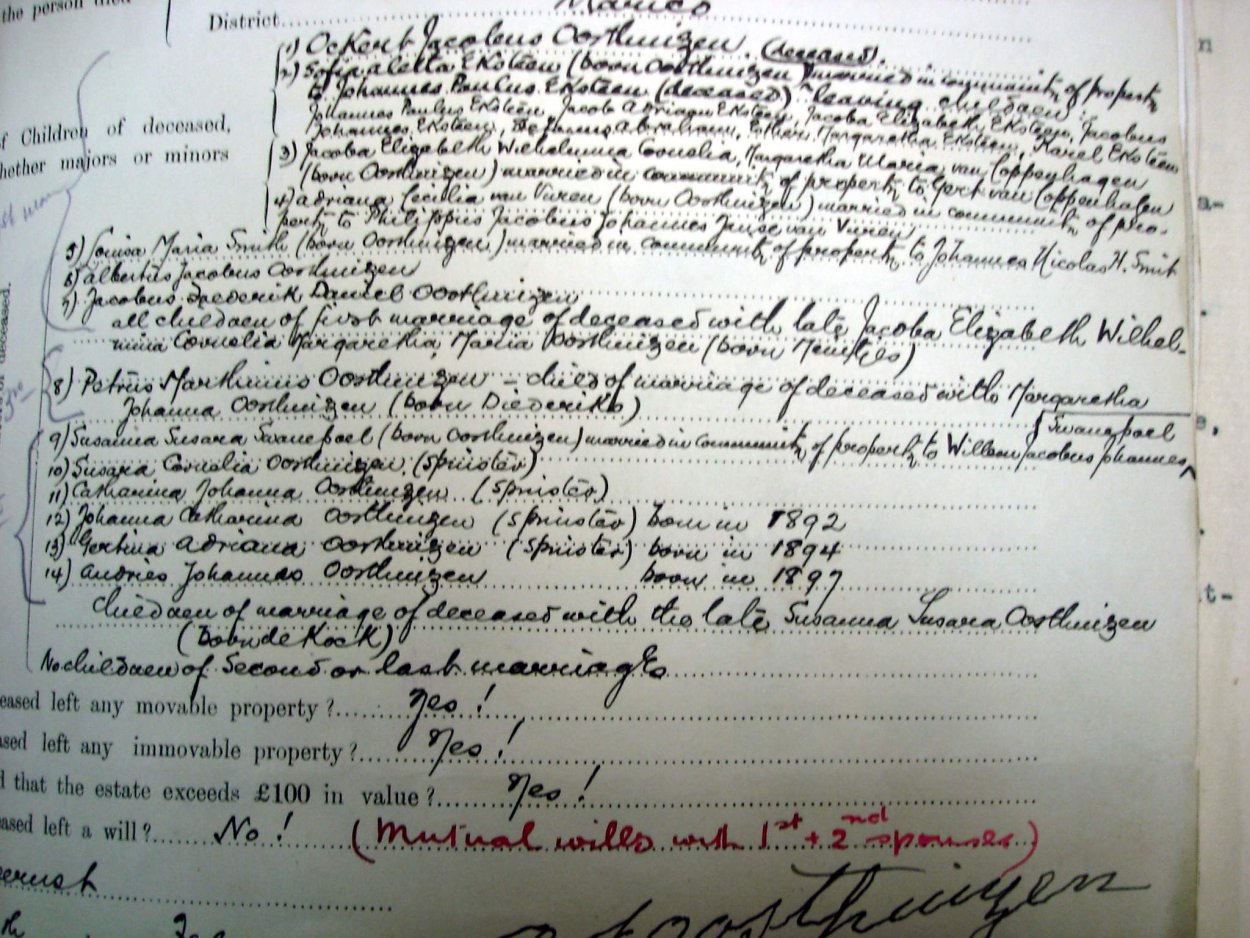 the person died
District Marico
1) Ockert Jacobus Oosthuizen. (deceased).
2) Sofia aletta Eksteen (born Oosthuizen) married in community of property
to Johannes Paulus Eksteen (deceased) leaving children:
Johannes Paulus Eksteen, Jacob Adriaan Eksteen, Jacoba Elizabeth Eksteen, Jacobus
Johannes Eksteen, Abraham, Esther Margaretha Eksteen, Karel Eksteen
f Children of deceased,
hether majors or minors
3) Jacoba Elizabeth Wilhelmina Cornelia, Margaretha Maria van Coppenhagen
(born Oosthuizen) married in community of property to Gert van Coppenhagen
4) adriana Cecilia van Vuren (born Oosthuizen) married in community of pro-
perty to Philippus Jacobus Johannes Janse van Vuren
5) Louisa Maria Smith (born Oosthuizen) married in community of property to Johannes Nicolas H. Smit
6) albertus Jacobus Oosthuizen
7) Jacobus Frederik Daniel Oosthuizen
all children of first marriage of deceased with late Jacoba Elizabeth Wilhel-
mina Cornelia Margaretha Maria Oosthuizen (born Meintjes)
8) Petrus Marthinus Oosthuizen – child of marriage of deceased with Margaretha
Johanna Oosthuizen (born Diederiks)
9) Susanna Susara Swanepoel (born Oosthuizen) married in community of property to Willem Jacobus Johannes
Swanepoel
10) Susara Cornelia Oosthuizen (Spinster)
11) Catharina Johanna Oosthuizen (Spinster)
12) Johanna Catharina Oosthuizen (Spinster) born in 1892
13) Gertina adriana Oosthuizen (Spinster) born in 1894
14) andries Johannes Oosthuizen born in 1897
children of marriage of deceased with the late Susanna Susara Oosthuizen
(Born de Kock)
No children of Second or last marriages
eased left any movable property? Yes!
ased left any immovable property? Yes!
d that the estate exceeds £100 in value? Yes!
ased left a will? No! (Mutual wills with 1st + 2nd spouses)
Oosthuizen